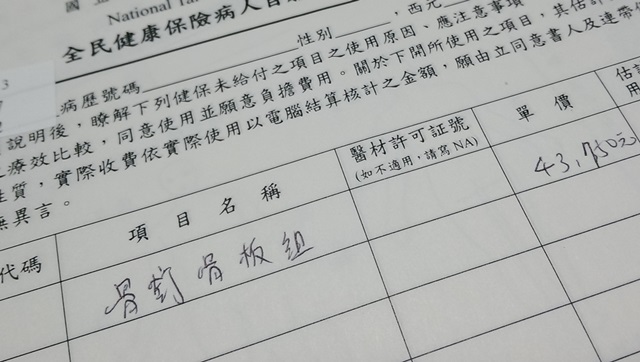 國
National Ta
全民健康保險病人自
3
7
2
性別，西元
病歷號碼
說明後，瞭解下列健保未給付之項目之使用原因、應注意事項
療效比較，同意使用並願意負擔費用。關於下開所使用之項目，其估計
性質，實際收費依實際使用以電腦結算核計之金額，願由立同意書人及連帶
無異言。
代碼
項目名稱
醫材許可証號
(如不適用，請寫 NA)
單價
估計
用
骨釘骨板組
43,750元